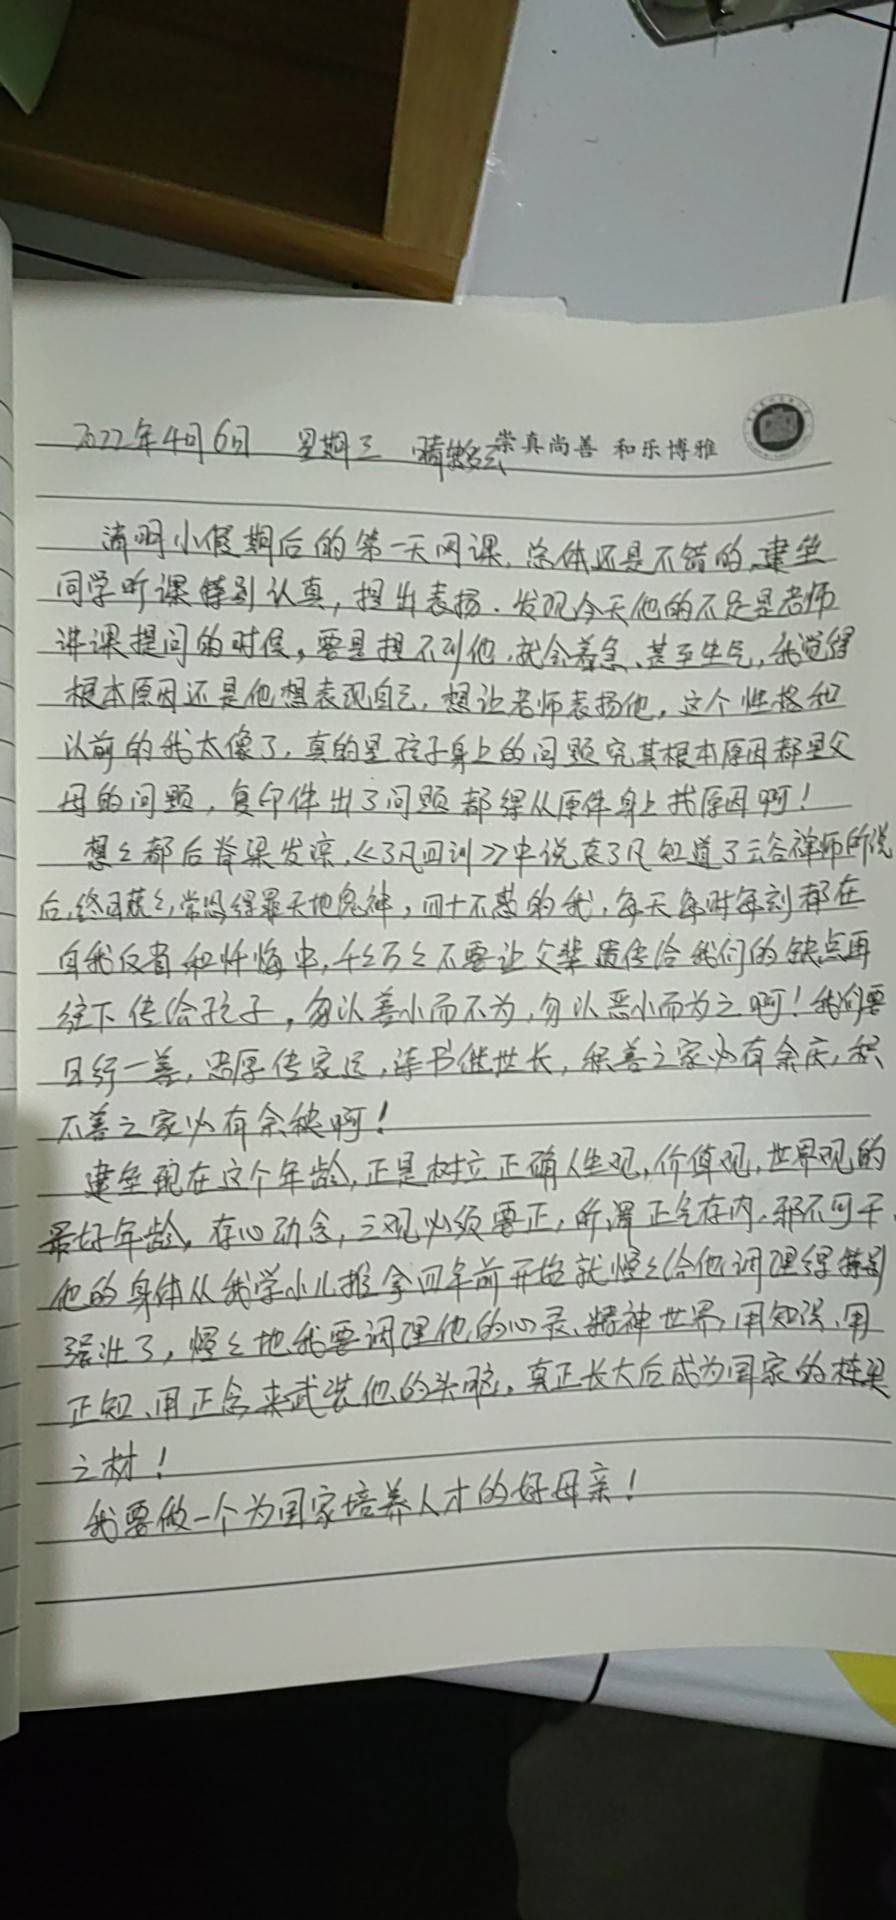 2022年4月6日 星期三 晴转多云 崇真尚善 和乐博雅
清明小假期后的第一天网课,总体还是不错的,建
同学听课特别认真,提出表扬.发现今天他的不足是老师
讲课提问的时候,要是提不到他,就会着急、甚至生气,我觉得
根本原因还是他想表现自己,想让老师表扬他,这个性格和
以前的我太像了,真的是孩子身上的问题究其根本原因都是父
母的问题,复印件出了问题都得从原件身上找原因啊!
想々都后脊梁发凉,《了凡四训》中说袁了凡知道了云谷禅师所说
后,终日兢々,常恐得罪天地鬼神,四十不惑的我,每天每时每刻都在
自我反省和忏悔中,千々万々不要让父辈遗传给我们的缺点再
往下传给孩子,勿以善小而不为,勿以恶小而为之啊!我们要
日行一善,忠厚传家远,读书继世长,积善之家必有余庆,积
不善之家必有余殃啊!
建 现在这个年龄,正是树立正确人生观,价值观,世界观的
最好年龄,存心动念,三观必须要正,所谓正气存内,邪不可干,
他的身体从我学小儿推拿四年前开始就慢々给他调理得特别
强壮了,慢々地我要调理他的心灵、精神世界,用知识、用
正知、用正念来武装他的头脑,真正长大后成为国家的栋梁
之材!
我要做一个为国家培养人才的好母亲!